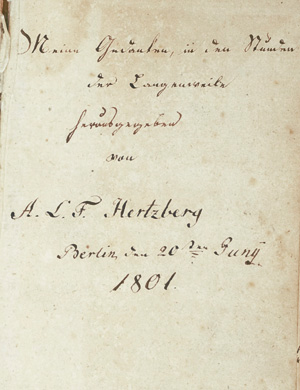 Meine Gedanken, in den Stunden
der Langenweile
herausgegeben
von
A. L. F. Hertzberg
Berlin, den 20sten Juny
1801.